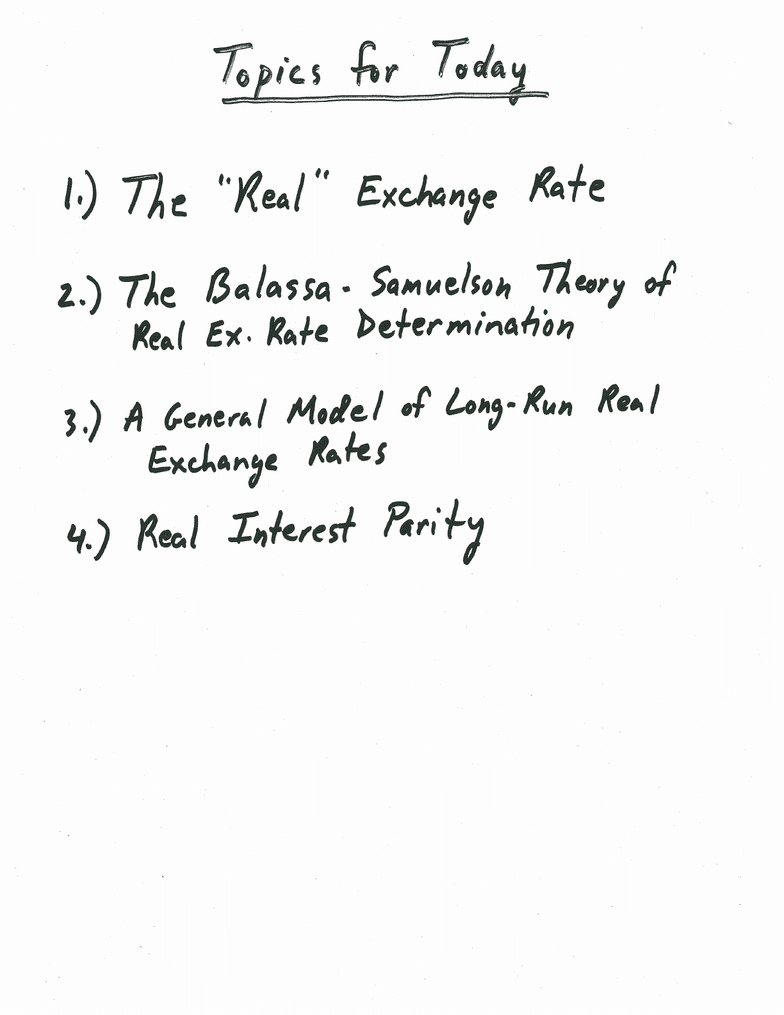 Topics for Today
1.) The "Real" Exchange Rate
2.) The Balassa-Samuelson Theory of
Real Ex. Rate Determination
3.) A General Model of Long-Run Real
Exchange Rates
4.) Real Interest Parity